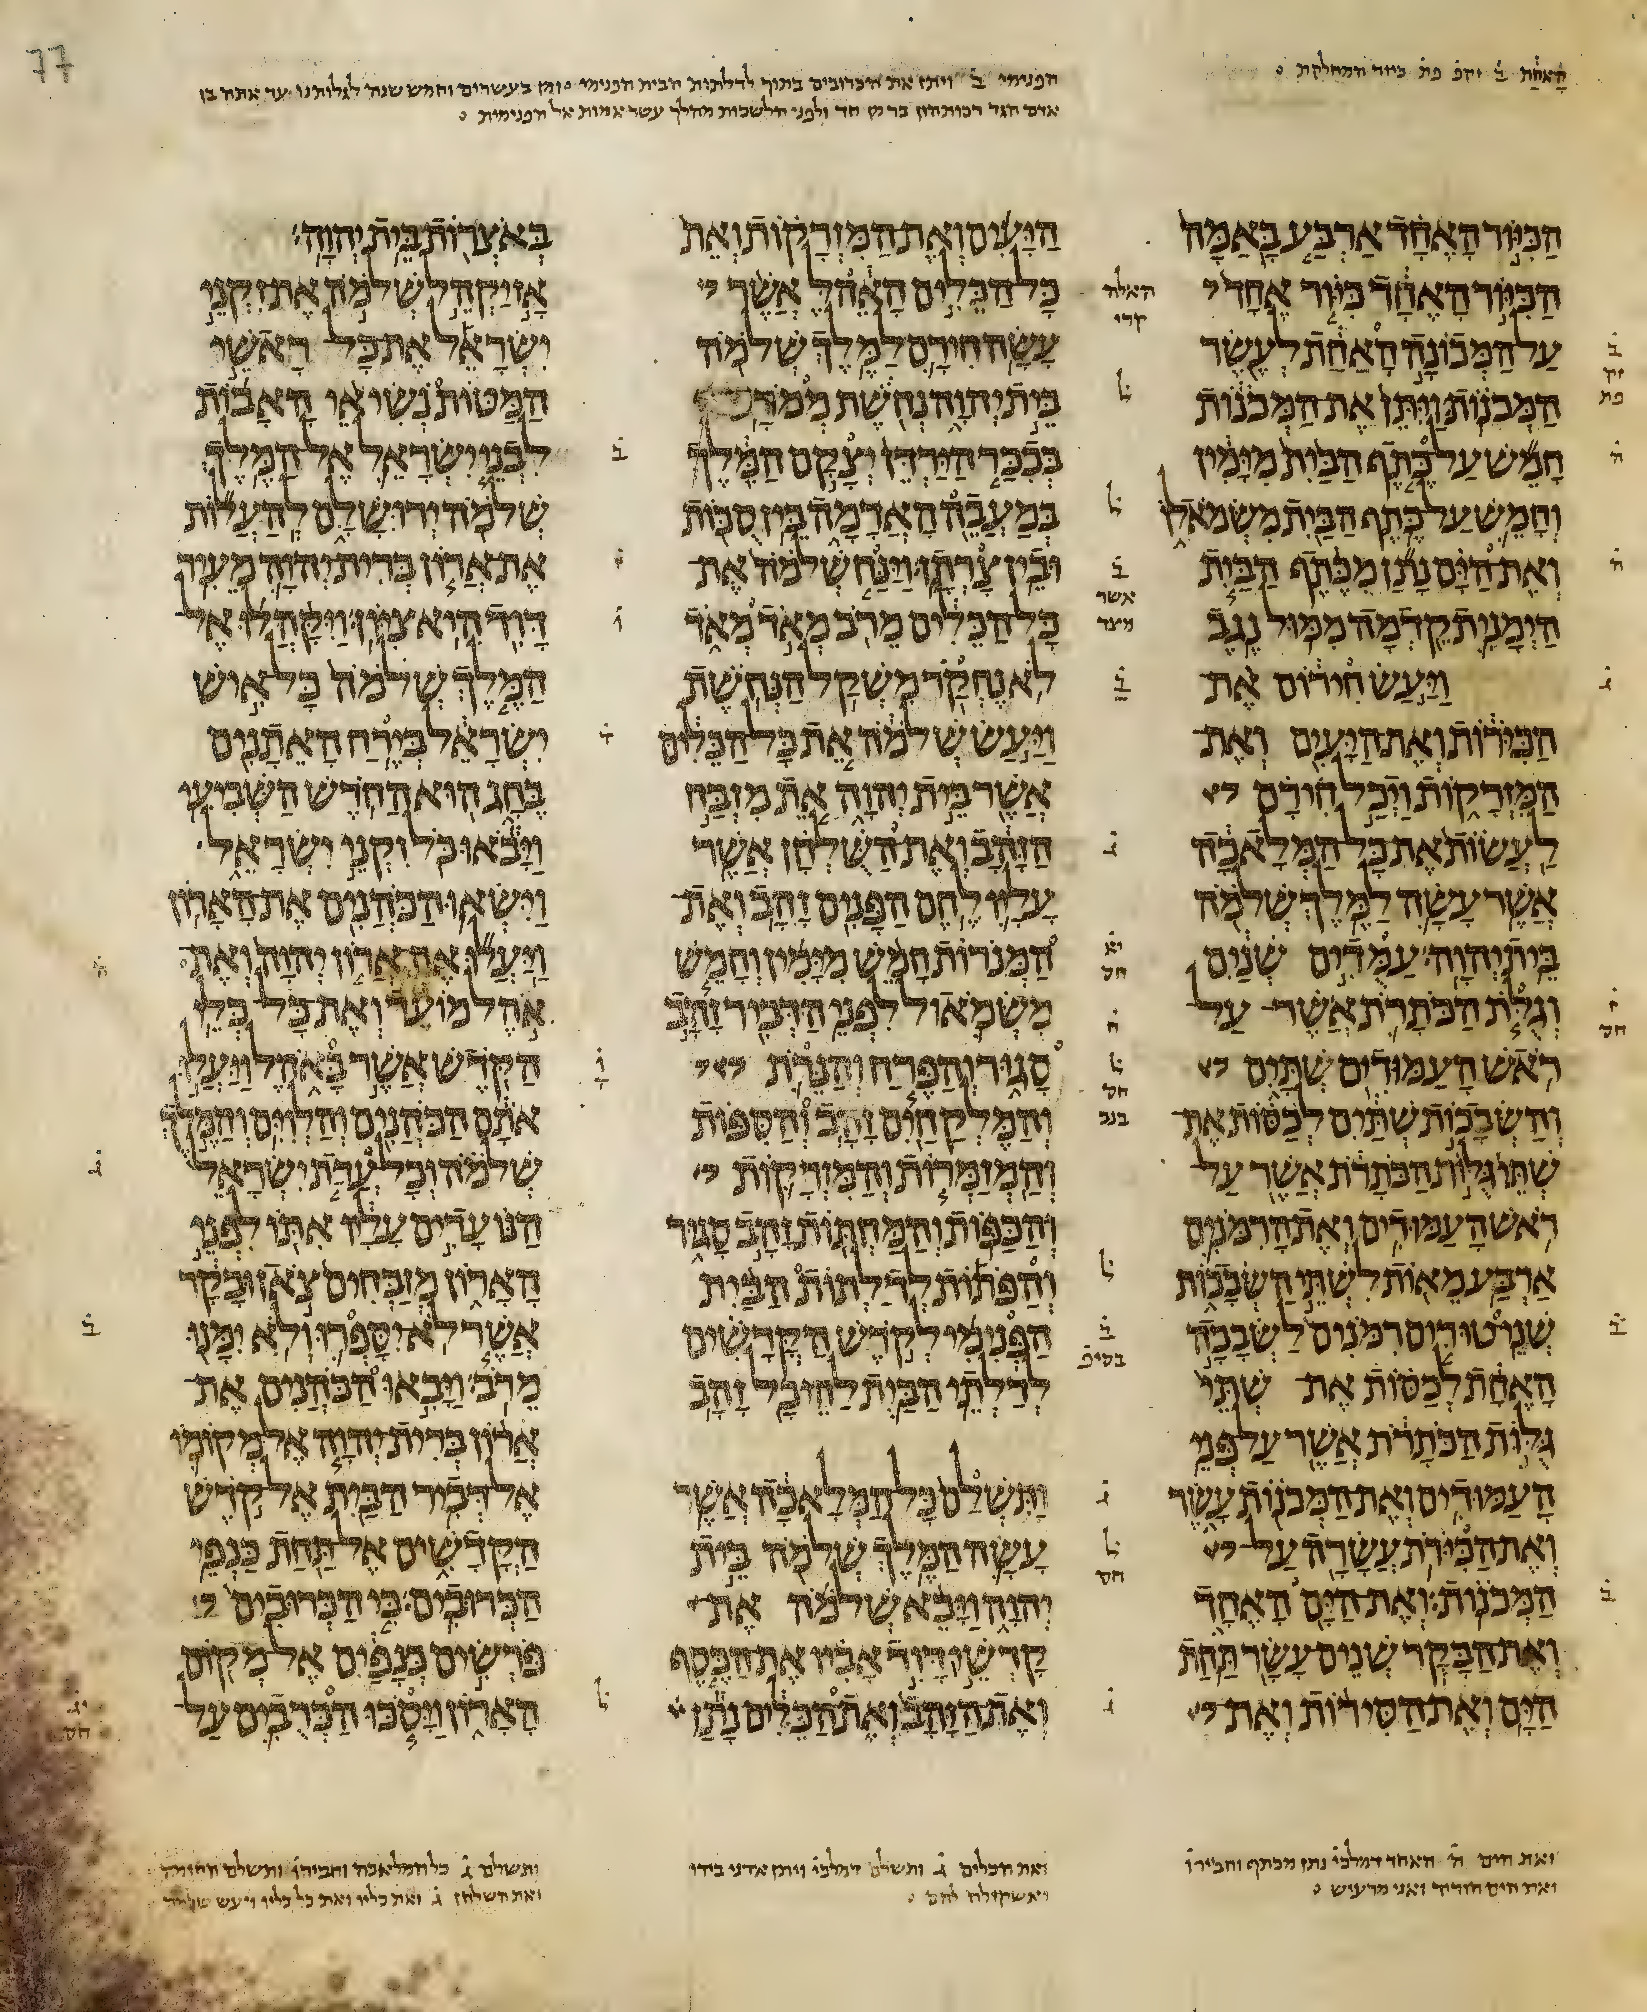 77
האחת ב̇ זקפ̇ פת̇ כיור המחלקת
הפנימי ב̇ ויתן את הכרובים בתוך הבית הפנימי
הכיור האחד ארבע באמה
הכיור האחד כיור אחד
על המכונה האחת לעשר
המכנות ויתן את המכנות
חמש על כתף הבית מימין
וחמש על כתף הבית משמאלו
ואת הים נתן מכתף הבית
הימנית קדמה ממול נגב
ויעש חירום את
הכירות ואת היעים ואת
המזרקות ויכל חירם
לעשות את כל המלאכה
אשר עשה למלך שלמה
בית יהוה עמדים שנים
וגלת הכתרת אשר על
ראש העמודים שתים
והשבכות שתים לכסות את
שתי גלות הכתרת אשר על
ראש העמודים ואת הרמנים
ארבע מאות לשתי השבכות
שני טורים רמנים לשבכה
האחת לכסות את שתי
גלות הכתרת אשר על פני
העמודים ואת המכנות עשר
ואת הכירת עשרה על
המכנות ואת הים האחד
ואת הבקר שנים עשר תחת
הים ואת הסירות ואת
היעים ואת המזרקות ואת
כל הכלים האהל אשר
עשה חירם למלך שלמה
בית יהוה נחשת ממרט
בככר הירדן יצקם המלך
במעבה האדמה בין סכות
ובין צרתן וינח שלמה את
כל הכלים מרב מאד מאד
לא נחקר משקל הנחשת
ויעש שלמה את כל הכלים
אשר בית יהוה את מזבח
הזהב ואת השלחן אשר
עליו לחם הפנים זהב ואת
המנרות חמש מימין וחמש
משמאול לפני הדביר זהב
סגור והפרח והנרת
והמלקחים זהב והספות
והמזמרות והמזרקות
והכפות והמחתות זהב סגור
והפתות לדלתות הבית
הפנימי לקדש הקדשים
לדלתי הבית להיכל זהב
ותשלם כל המלאכה אשר
עשה המלך שלמה בית
יהוה ויבא שלמה את
קדשי דויד אביו את הכסף
ואת הזהב ואת הכלים נתן
באצרות בית יהוה
אז יקהל שלמה את זקני
ישראל את כל ראשי
המטות נשיאי האבות
לבני ישראל אל המלך
שלמה ירושלם להעלות
את ארון ברית יהוה מעיר
דוד היא ציון ויקהלו אל
המלך שלמה כל איש
ישראל בירח האתנים
בחג הוא החדש השביעי
ויבאו כל זקני ישראל
וישאו הכהנים את הארון
ויעלו את ארון יהוה ואת
אהל מועד ואת כל כלי
הקדש אשר באהל ויעלו
אתם הכהנים והלוים והמלך
שלמה וכל עדת ישראל
הנועדים עליו אתו לפני
הארון מזבחים צאן ובקר
אשר לא יספרו ולא ימנו
מרב ויבאו הכהנים את
ארון ברית יהוה אל מקומו
אל דביר הבית אל קדש
הקדשים אל תחת כנפי
הכרובים כי הכרובים
פרשים כנפים אל מקום
הארון ויסכו הכרבים על
ואת הים ה̇ האחד דמלכי̇ נתן מכתף וחבירו̇
ואת הכלים ג̇ ותשלם דמלכי̇ ויתן אדני בידו
ותשלם ג̇ כל המלאכה וחבירו̇ ותשלם החומה
ואת השלחן ג̇ ואת כליו ואת כל כליו ויעש שלמה